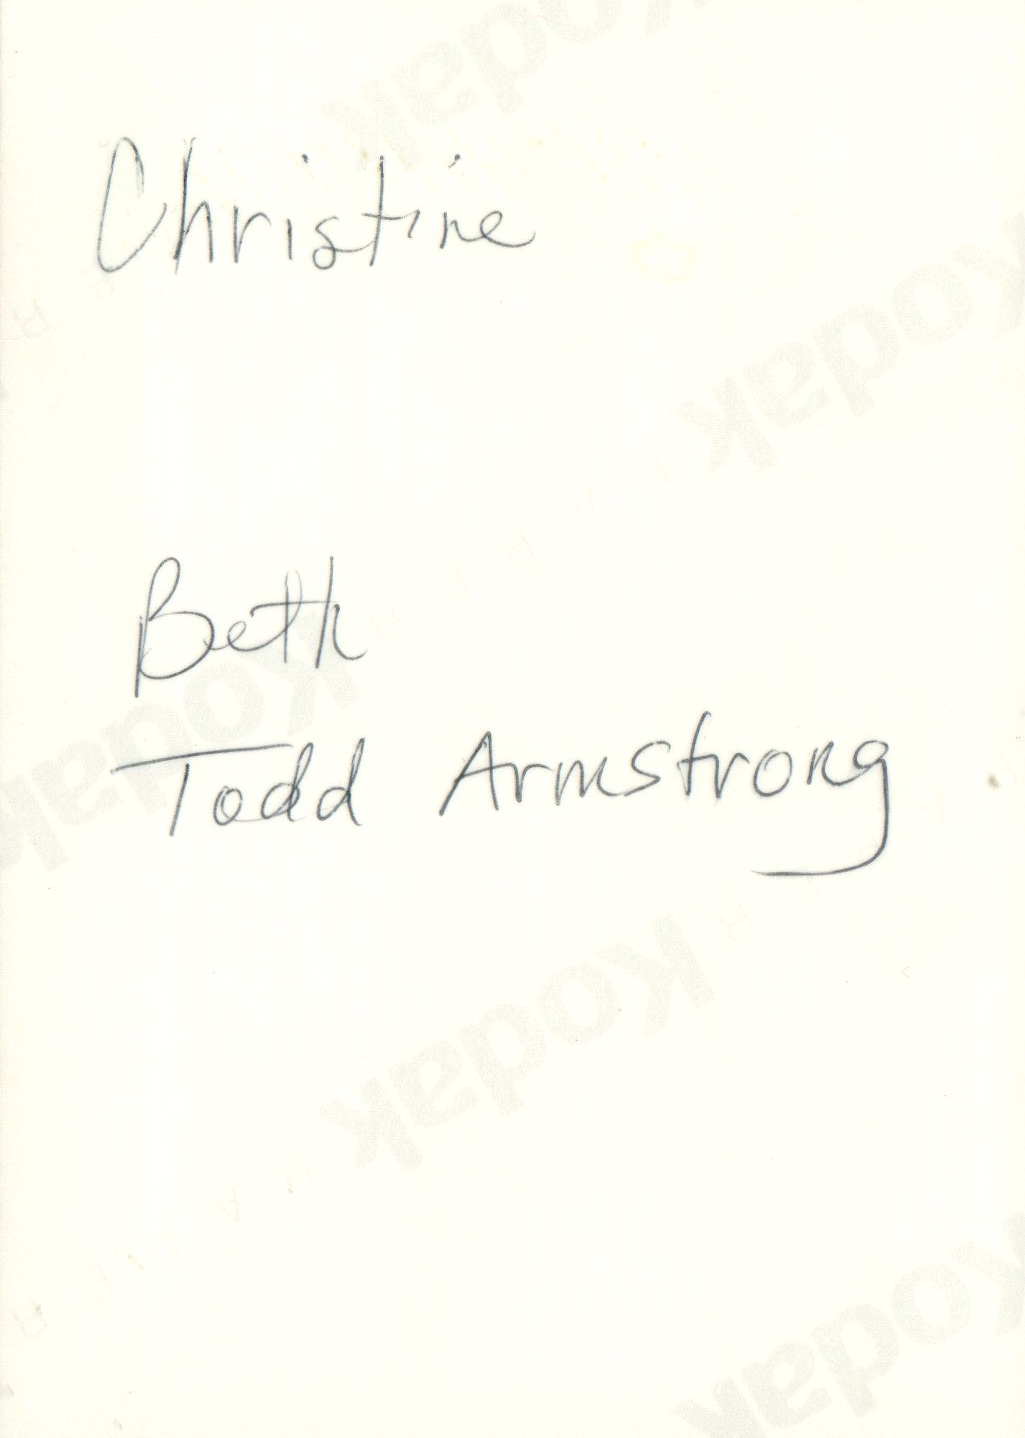 Christine
Beth
Todd Armstrong
Kodak
Kodak
Kodak
Kodak
Kodak